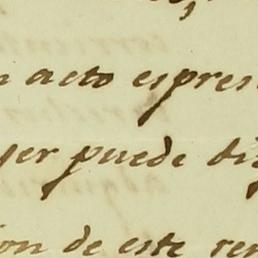 n acto espres
yer puede di
ion de este ren